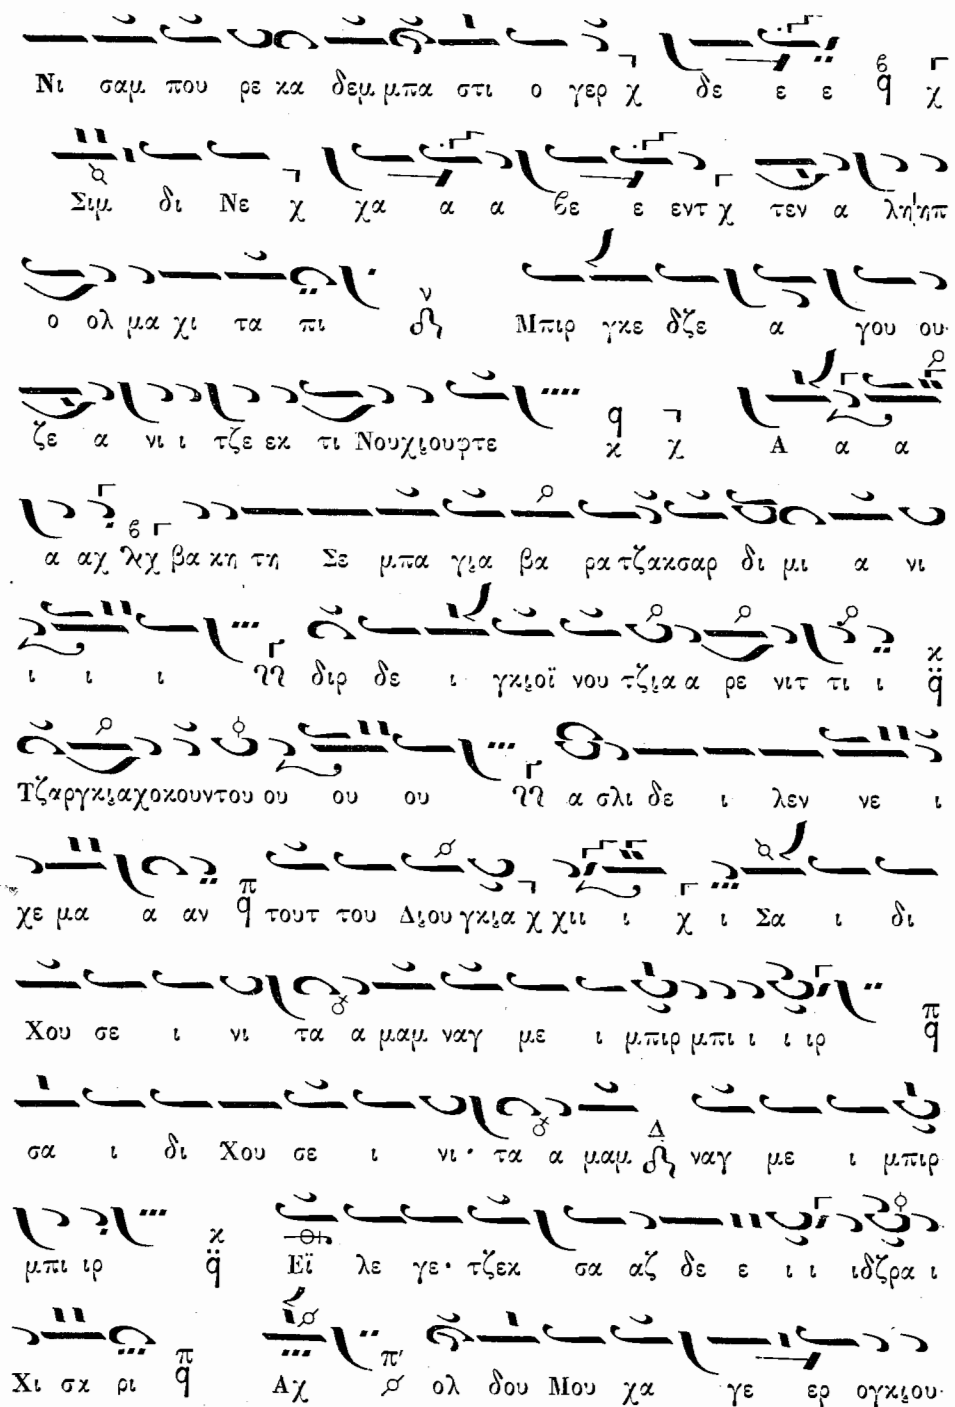 Νι σαμ που ρε κα δεμ μπα στι ο γερ χ δε ε ε q χ
Σιμ δι Νε χ χα α α βε ε εντ χ τεν α λη ηπ
ο ολ μα χι τα πι Μπιρ γκε δζε α γου ου·
ζε α νι ι τζε εκ τι Νουχιουφτε q κ χ Α α α
α αχ χ βα κη τη Σε μπα για βα ρα τζακσαρ δι μι α νι
ι ι ι διρ δε ι γκιοϊ νου τζια α ρε νιτ τι ι q
Τζαργκιαχοκουντου ου ου ου α σλι δε ι λεν νε ι
χε μα α αν q τουτ του Διου γκια χ χιι ι χ ι Σα ι δι
Χου σε ι νι τα α μαμ ναγ με ι μπιρ μπι ι ι ιρ q
σα ι δι Χου σε ι νι · τα α μαμ ναγ με ι μπιρ
μπι ιρ q Εϊ λε γε · τζεκ σα αζ δε ε ι ι ιδζρα ι
Χι σκ ρι q Αχ ολ δου Μου χα γε ερ ογκιου·